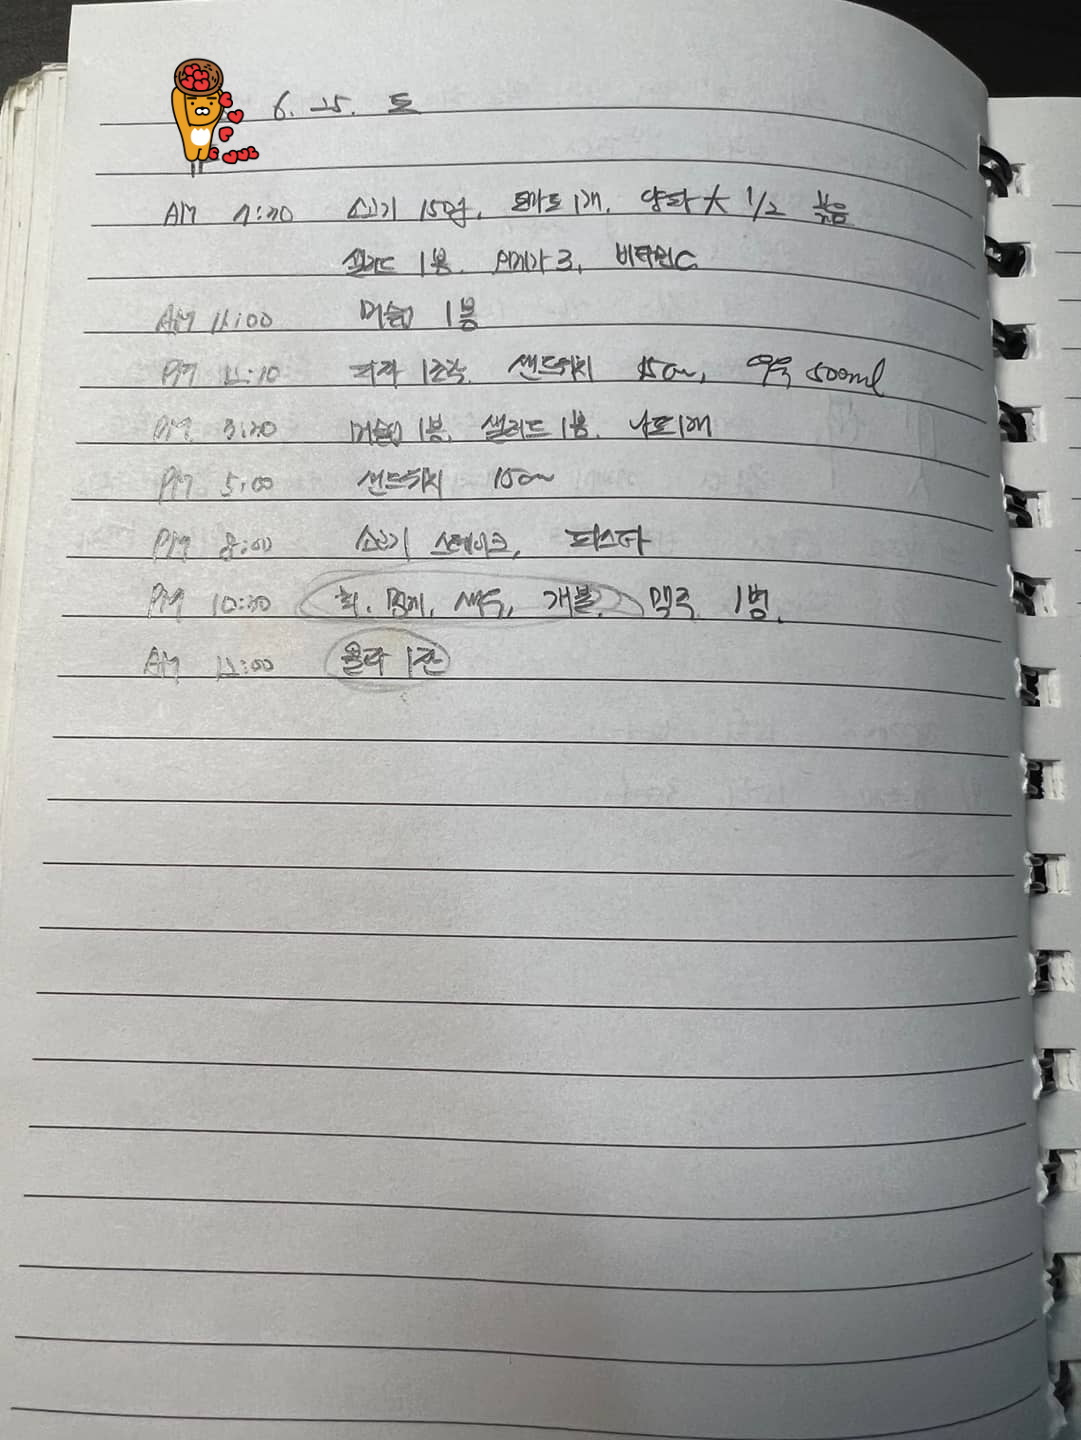 6. 25. 토
AM 7:30 소고기 150g, 토마토 1개, 양파 大 1/2 볶음
샐러드 1봉, 오메가 3, 비타민C
AM 11:00 머슬밀 1봉
PM 12:10 피자 1조각, 샌드위치 15cm, 우유 500ml
PM 3:30 머슬밀 1봉, 샐러드 1봉, 낫토 1개
PM 5:00 샌드위치 15cm
PM 8:00 소고기 스테이크, 파스타
PM 10:30 회, 멍게, 새우, 개불, 맥주 1병,
AM 12:00 콜라 1잔